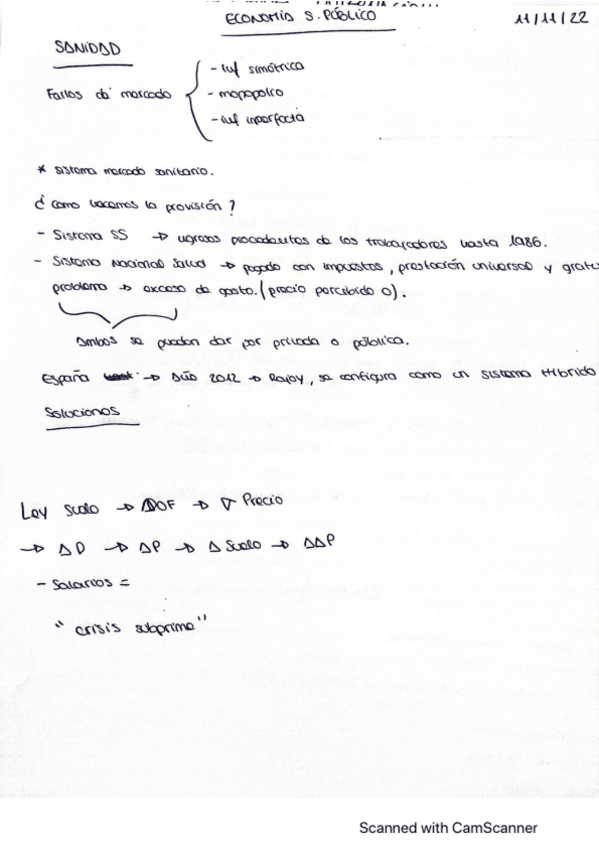 ECONOMÍA S. PÚBLICO
11/11/22
SANIDAD
Fallos de mercado
- inf simétrica
- monopolio
- inf imperfecta
* Sistema mercado sanitario.
¿ Como hacemos la provisión ?
- Sistema SS → ingresos procedentes de los trabajadores hasta 1986.
- Sistema Nacional Salud → pagado con impuestos, prestación universal y gratu
problema → exceso de gasto. (precio percibido 0).
Ambos se pueden dar por privada o pública.
España → Año 2012 → Rajoy, se configura como un sistema Híbrido
Soluciones
Ley suelo → ΔOF → ∇ Precio
→ ΔD → ΔP → Δ Suelo → ΔΔP
- Salarios =
" crisis subprime"
Scanned with CamScanner